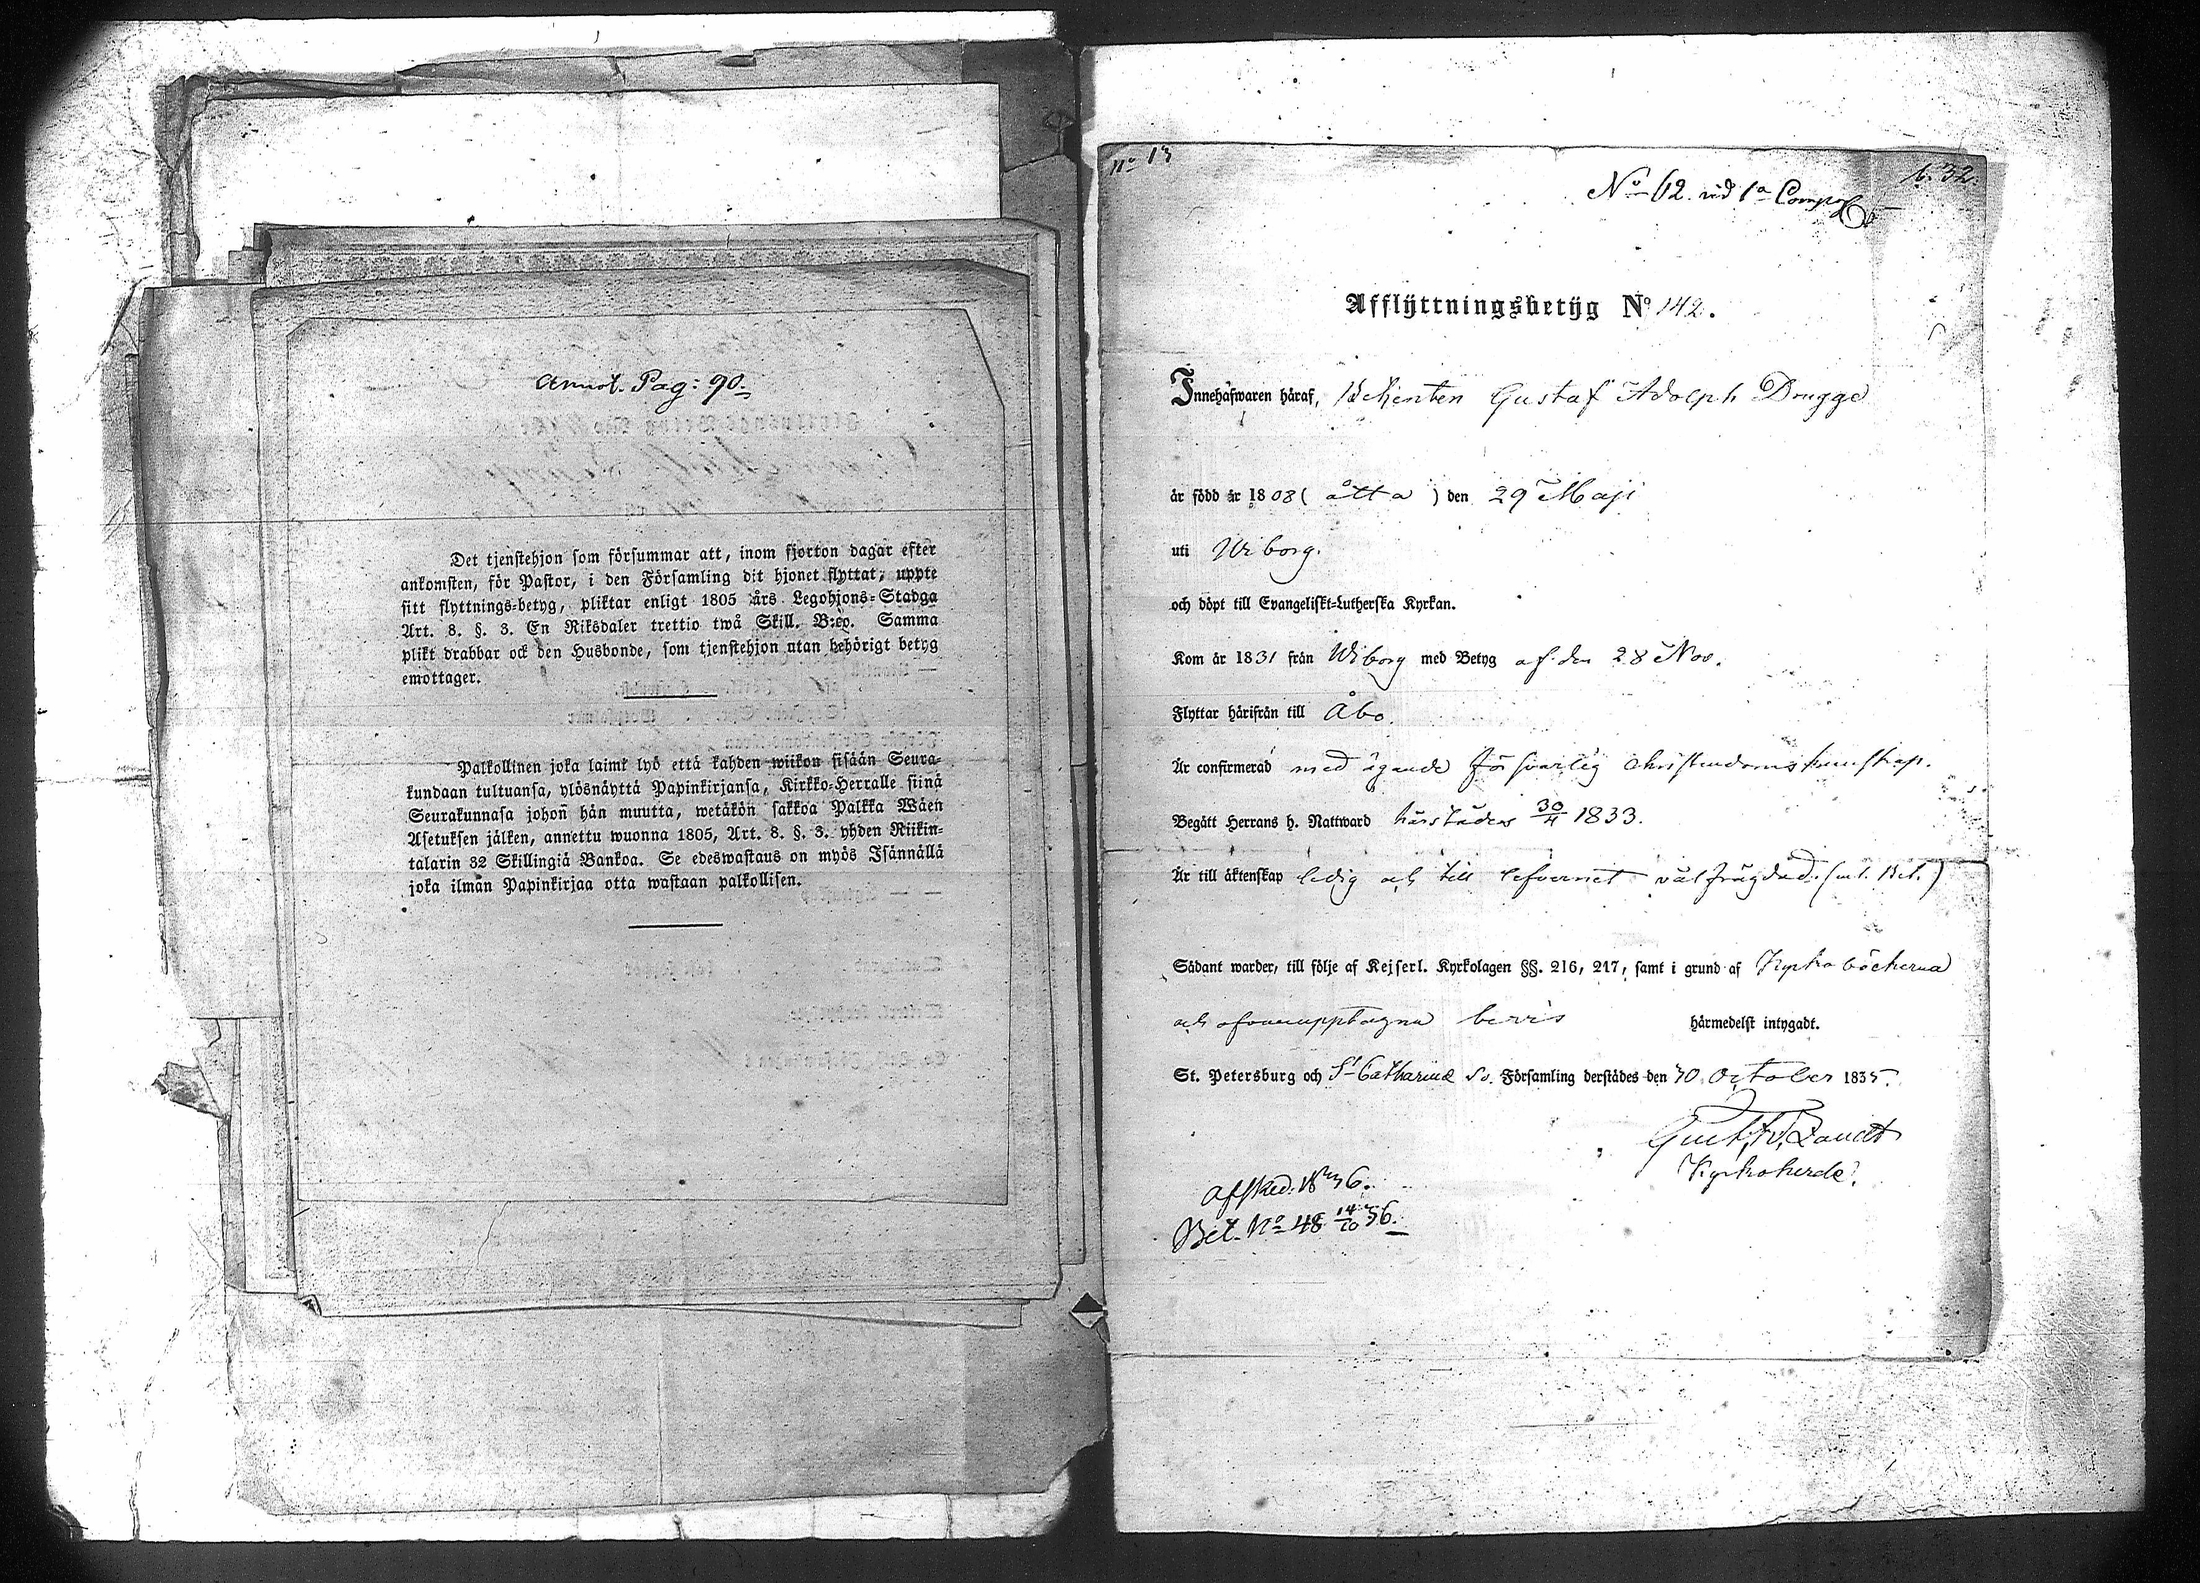 Annot. Pag: 90.
Det tjenstehjon som försummar att, inom fjorton dagar efter
ankomsten, för Pastor, i den Församling dit hjonet flyttat, uppte
sitt flyttnings-betyg, pliktar enligt 1805 års Legohjons-Stadga
Art. 8. §. 3. En Riksdaler trettio twå Skill. B:co. Samma
plikt drabbar ock den Husbonde, som tjenstehjon utan behörigt betyg
emottager.
Palkollinen joka laimi lyö että kahden wiikon sisään Seura-
kundaan tultuansa, ylösnäyttä Papinkirjansa, Kirkko-Herralle siinä
Seurakunnasa johon̄ hän muutta, wetäkön sakkoa Palkka Wäen
Asetuksen jälken, annettu wuonna 1805, Art. 8. §. 3. yhden Riikin-
talarin 32 Skillingiä Bankoa. Se edeswastaus on myös Isännällä
joka ilman Papinkirjaa otta wastaan palkollisen.
No 13
b. 32.
No 62. vid 1a Comp
Afflyttningsbetyg No 142.
Innehafwaren häraf, Gustaf Adolph Drugge
är född år 1808 (åtta) den 29 Maji
uti Wiborg.
och döpt till Evangeliskt-Lutherska Kyrkan.
Kom år 1831 från Wiborg med Betyg af den 28 Nov.
Flyttar härifrån till Åbo.
Är confirmerad med ägande försvarlig christendomskunskap.
Begått Herrans h. Nattward härstädes 30/4 1833.
Är till äktenskap ledig och till lefvernet välfrägdad. (ut. Bet.)
Sådant warder, till följe af Kejserl. Kyrkolagen §§. 216, 217, samt i grund af Kyrkoböckerna
och ofvanupptagne bevis härmedelst intygadt.
St. Petersburg och St Catharinæ Sv. Församling derstädes den 30 October 1835.
Kyrkoherde.
Afsked. 1836.
Bet. No 48 14/10 36.